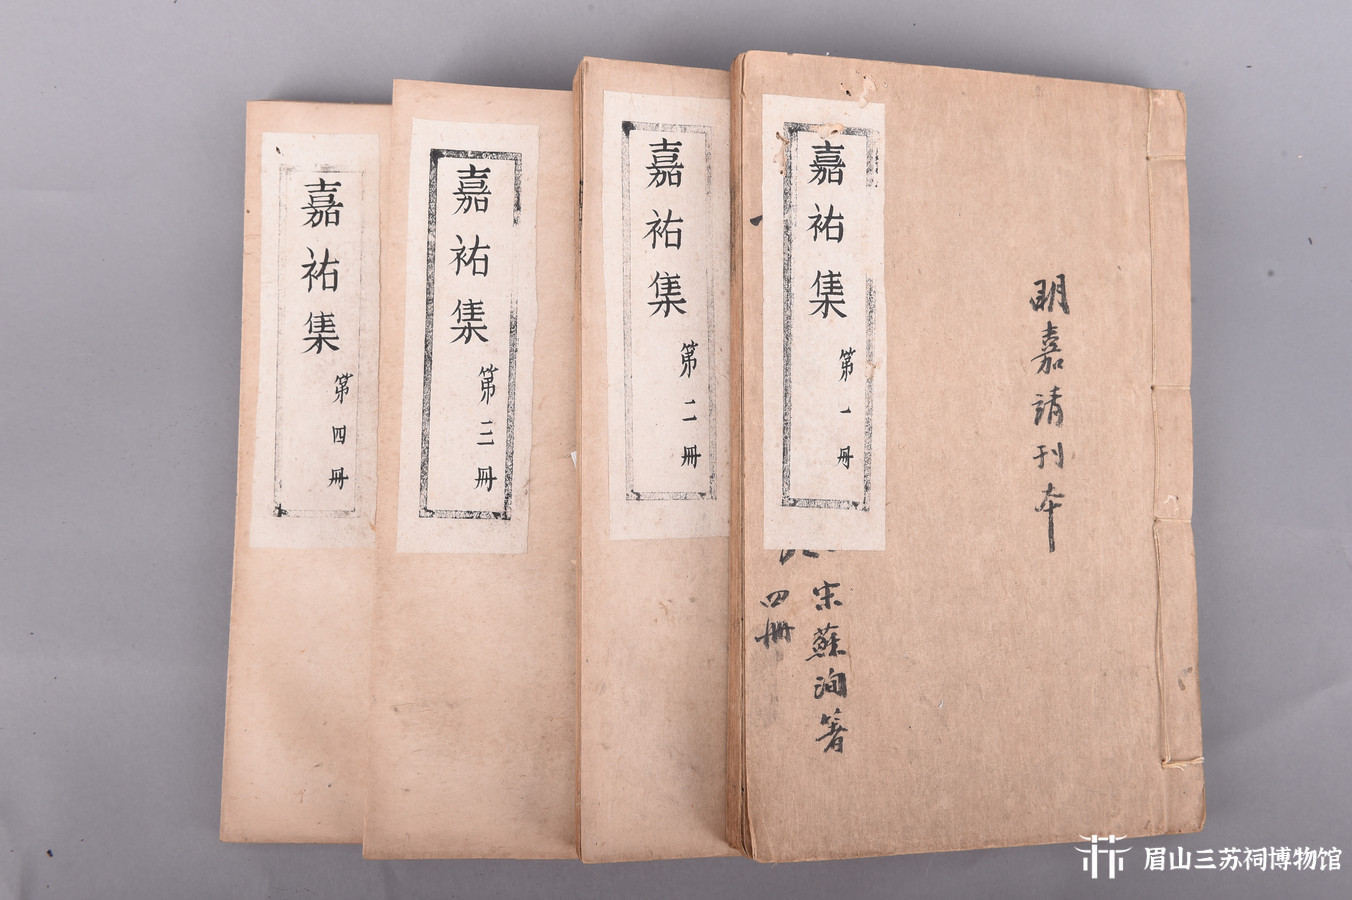 明嘉靖刊本
嘉祐集
第一册
宋蘇洵著
四册
嘉祐集
第二册
嘉祐集
第三册
嘉祐集
第四册
眉山三苏祠博物馆